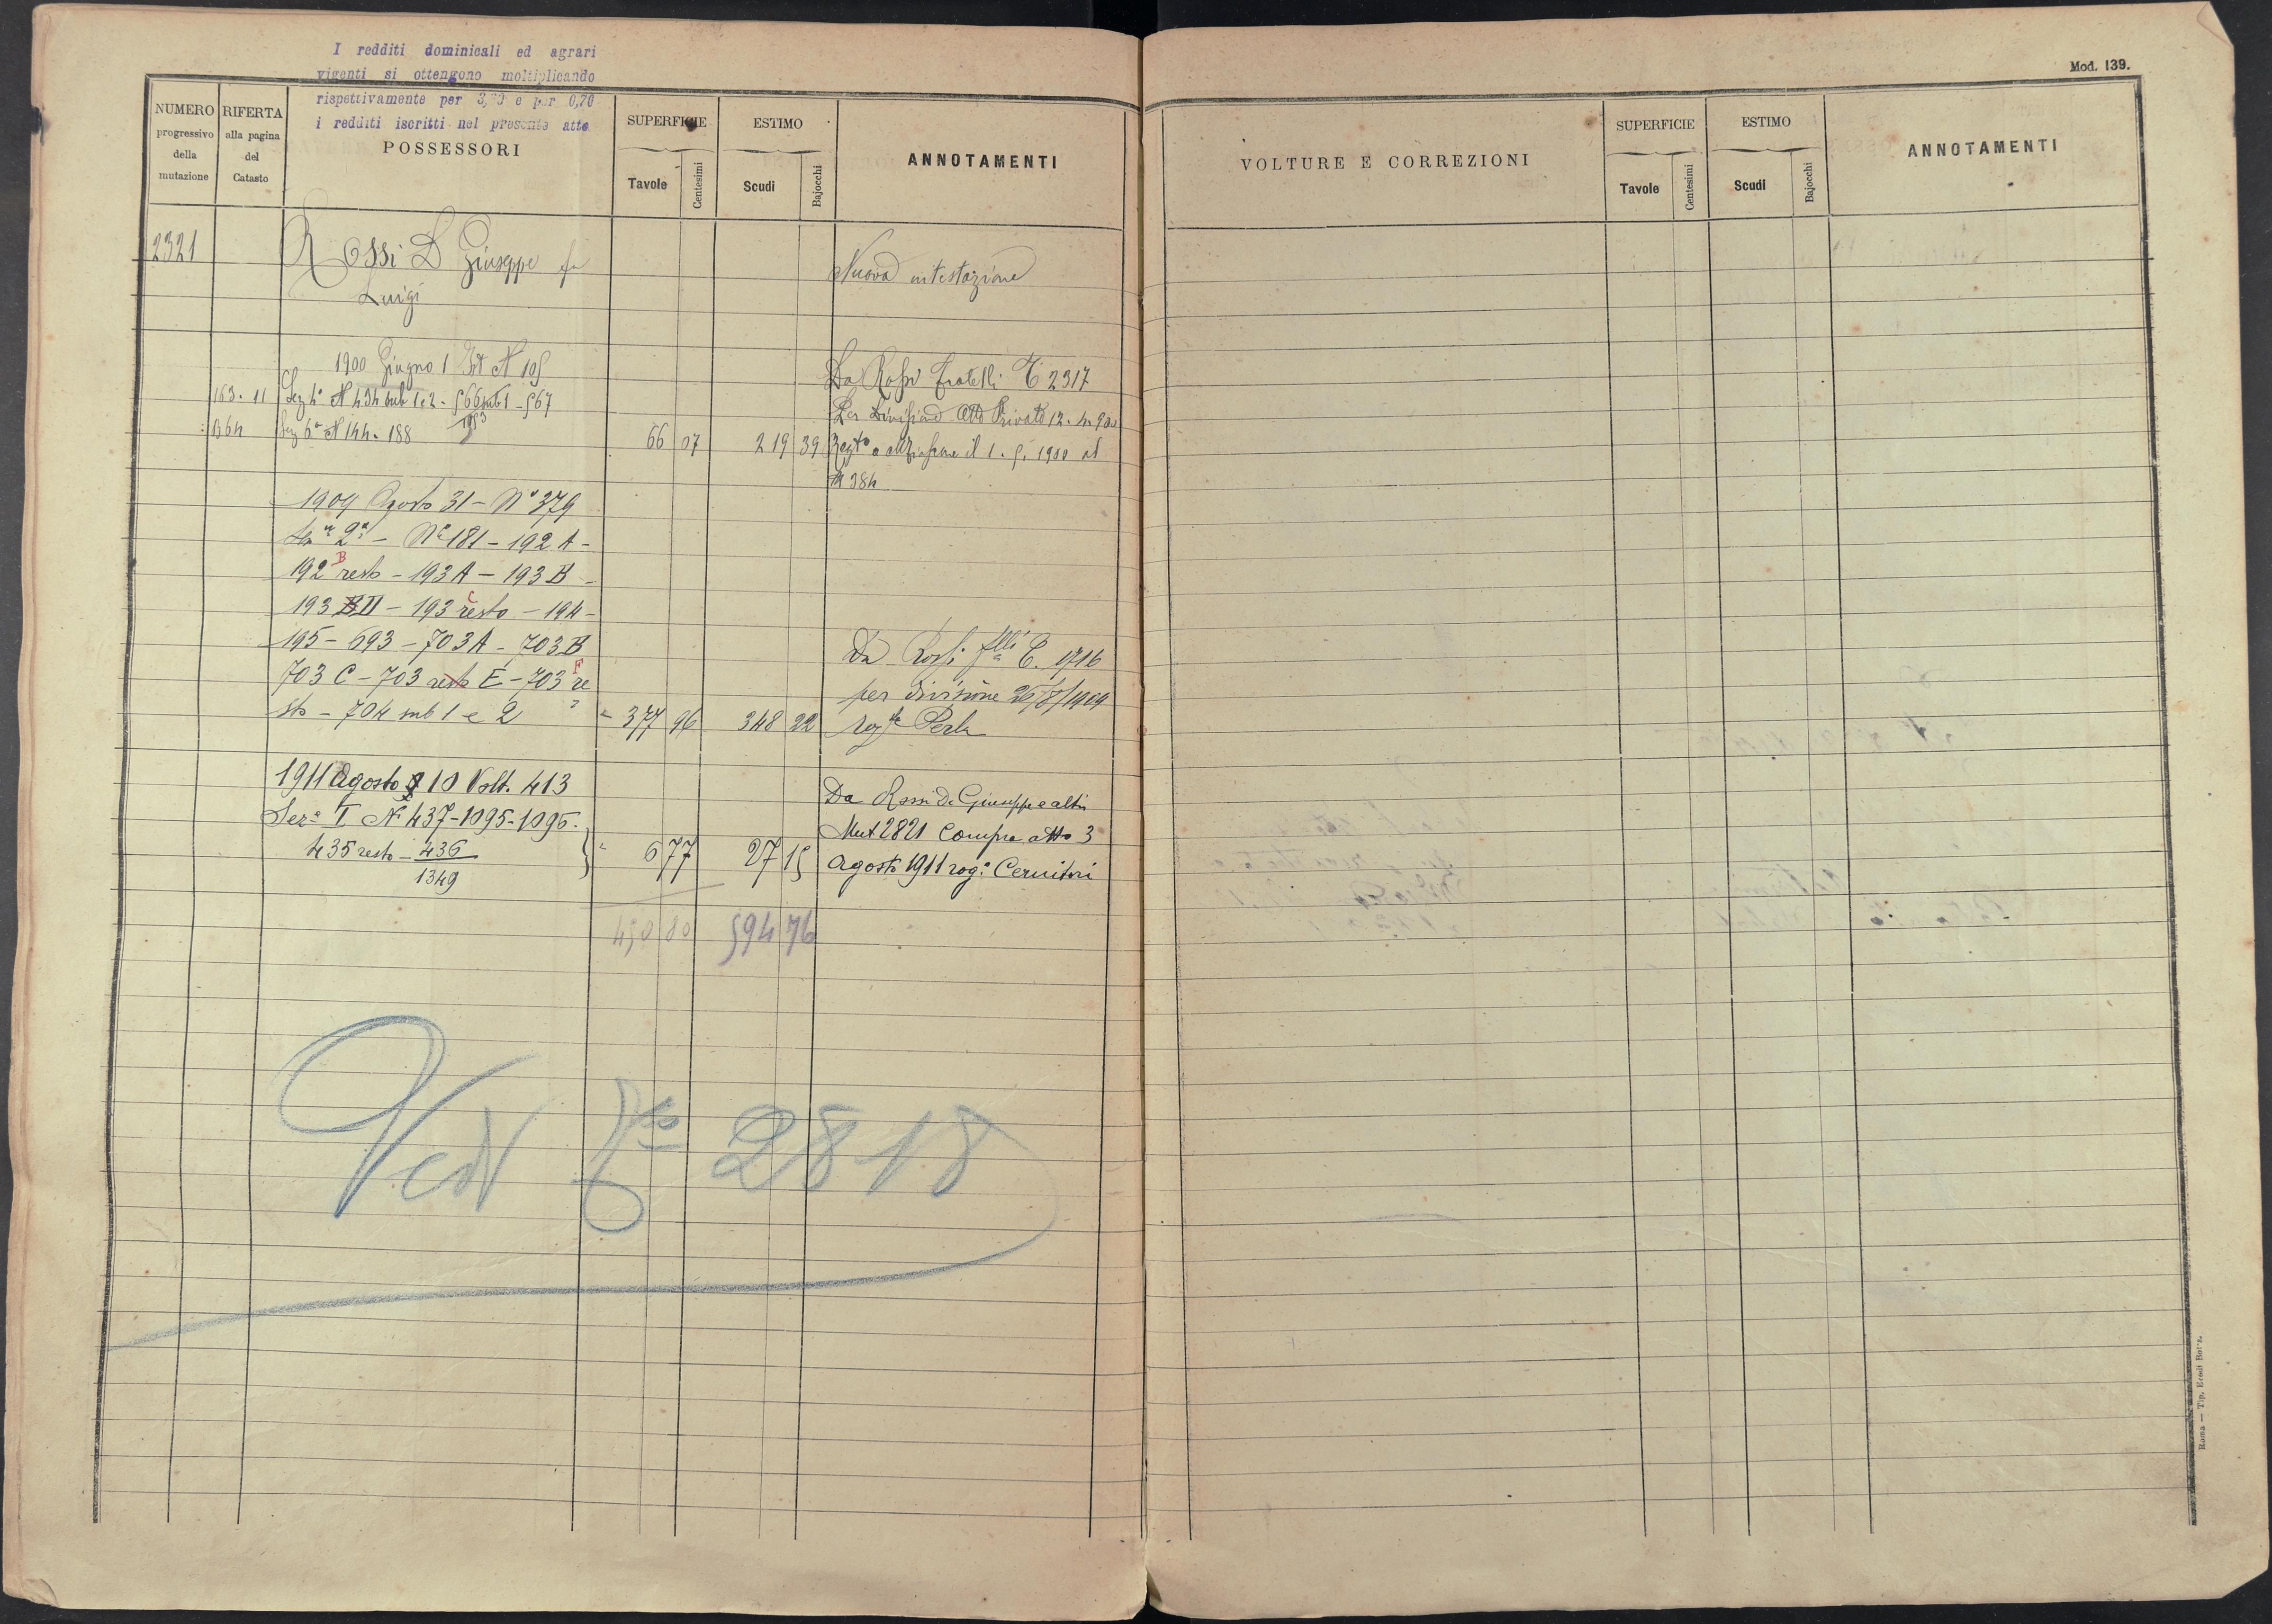 I redditi dominicali ed agrari
vigenti si ottengono moltiplicando
rispettivamente per 3, e per 0,70
i redditi iscritti nel presente atto
Mod. 139.
NUMERO
progressivo
della
mutazione
RIFERTA
alla pagina
del
Catasto
POSSESSORI
SUPERFICIE
Tavole
Centesimi
ESTIMO
Scudi
Bajocchi
ANNOTAMENTI
VOLTURE E CORREZIONI
SUPERFICIE
Tavole
Centesimi
ESTIMO
Scudi
Bajocchi
ANNOTAMENTI
2321
Rossi D Giuseppe fu
Luigi
Nuova intestazione
1900 Giugno 1 N 105
Da Rossi fratelli C 2317
163. 11 Sez 4a N 434 sub 1 e 2 - 566 sub 1 - 567
Per Divisione Atto Privato 12. 4. 900
Sez 6a N 144. 188
66 07 219 39 il 1. 5. 1900 al
N 384
1909 Agosto 31 - N° 379
2a - No 181 - 192 A -
192 B resto - 193 A - 193 B -
193 B II - 193 C resto - 194 -
195 - 693 - 703 A - 703 B
Da Rossi flli C. 1716
703 C - 703 resto E - 703 F re
per divisione 26/8/1909
sto - 704 sub 1 e 2
377 96 348 22 rogto Perla
1911 Agosto 10 Volt. 413
Da Rossi D. Giuseppe e altri
Sez.e I N° 437 - 1095 - 1096 -
Mut 2821 Compra atto 3
435 resto - 436
1349
6 77 27 15 Agosto 1911 rog.
450 80 594 76
Vedi 2818
Roma — Tip. Eredi Botta.